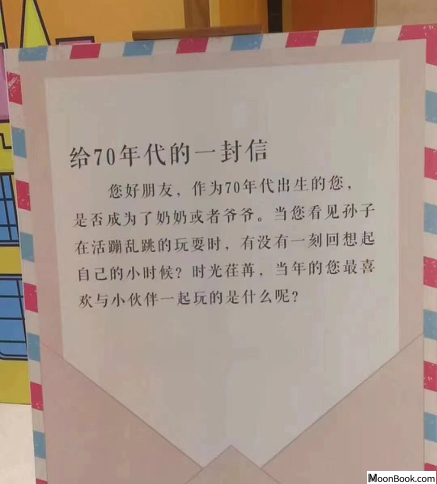 给70年代的一封信
您好朋友，作为70年代出生的您，
是否成为了奶奶或者爷爷。当您看见孙子
在活蹦乱跳的玩耍时，有没有一刻回想起
自己的小时候？时光荏苒，当年的您最喜
欢与小伙伴一起玩的是什么呢？
MoonBook.com